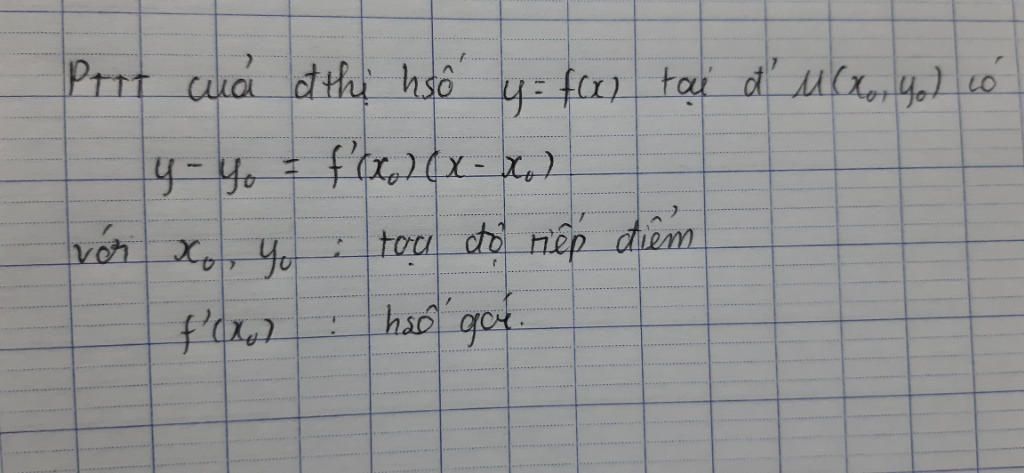 PTTT cuả đthị hsố y = f(x) tại đ' M(x₀, y₀) có
y - y₀ = f'(x₀)(x - x₀)
với x₀, y₀ : tọa độ tiếp điểm
f'(x₀) : hsố góc.